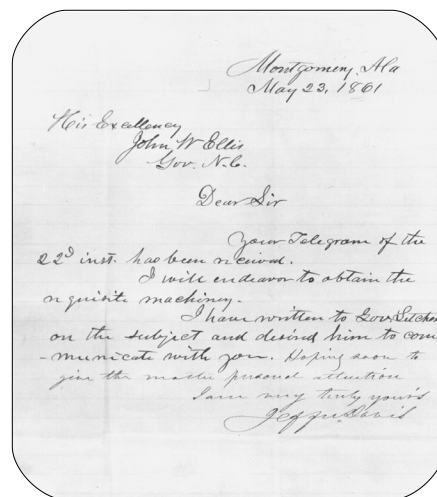 Montgomery, Ala
May 23, 1861
His Excellency
John W Ellis
Gov. N.C.
Dear Sir
Your Telegram of the
22d inst. has been received.
I will endeavor to obtain the
requisite machinery.
I have written to Gov. Letcher
on the subject and desired him to com
-municate with you. Hoping soon to
give the matter personal attention
I am very truly yours
Jeffn. Davis